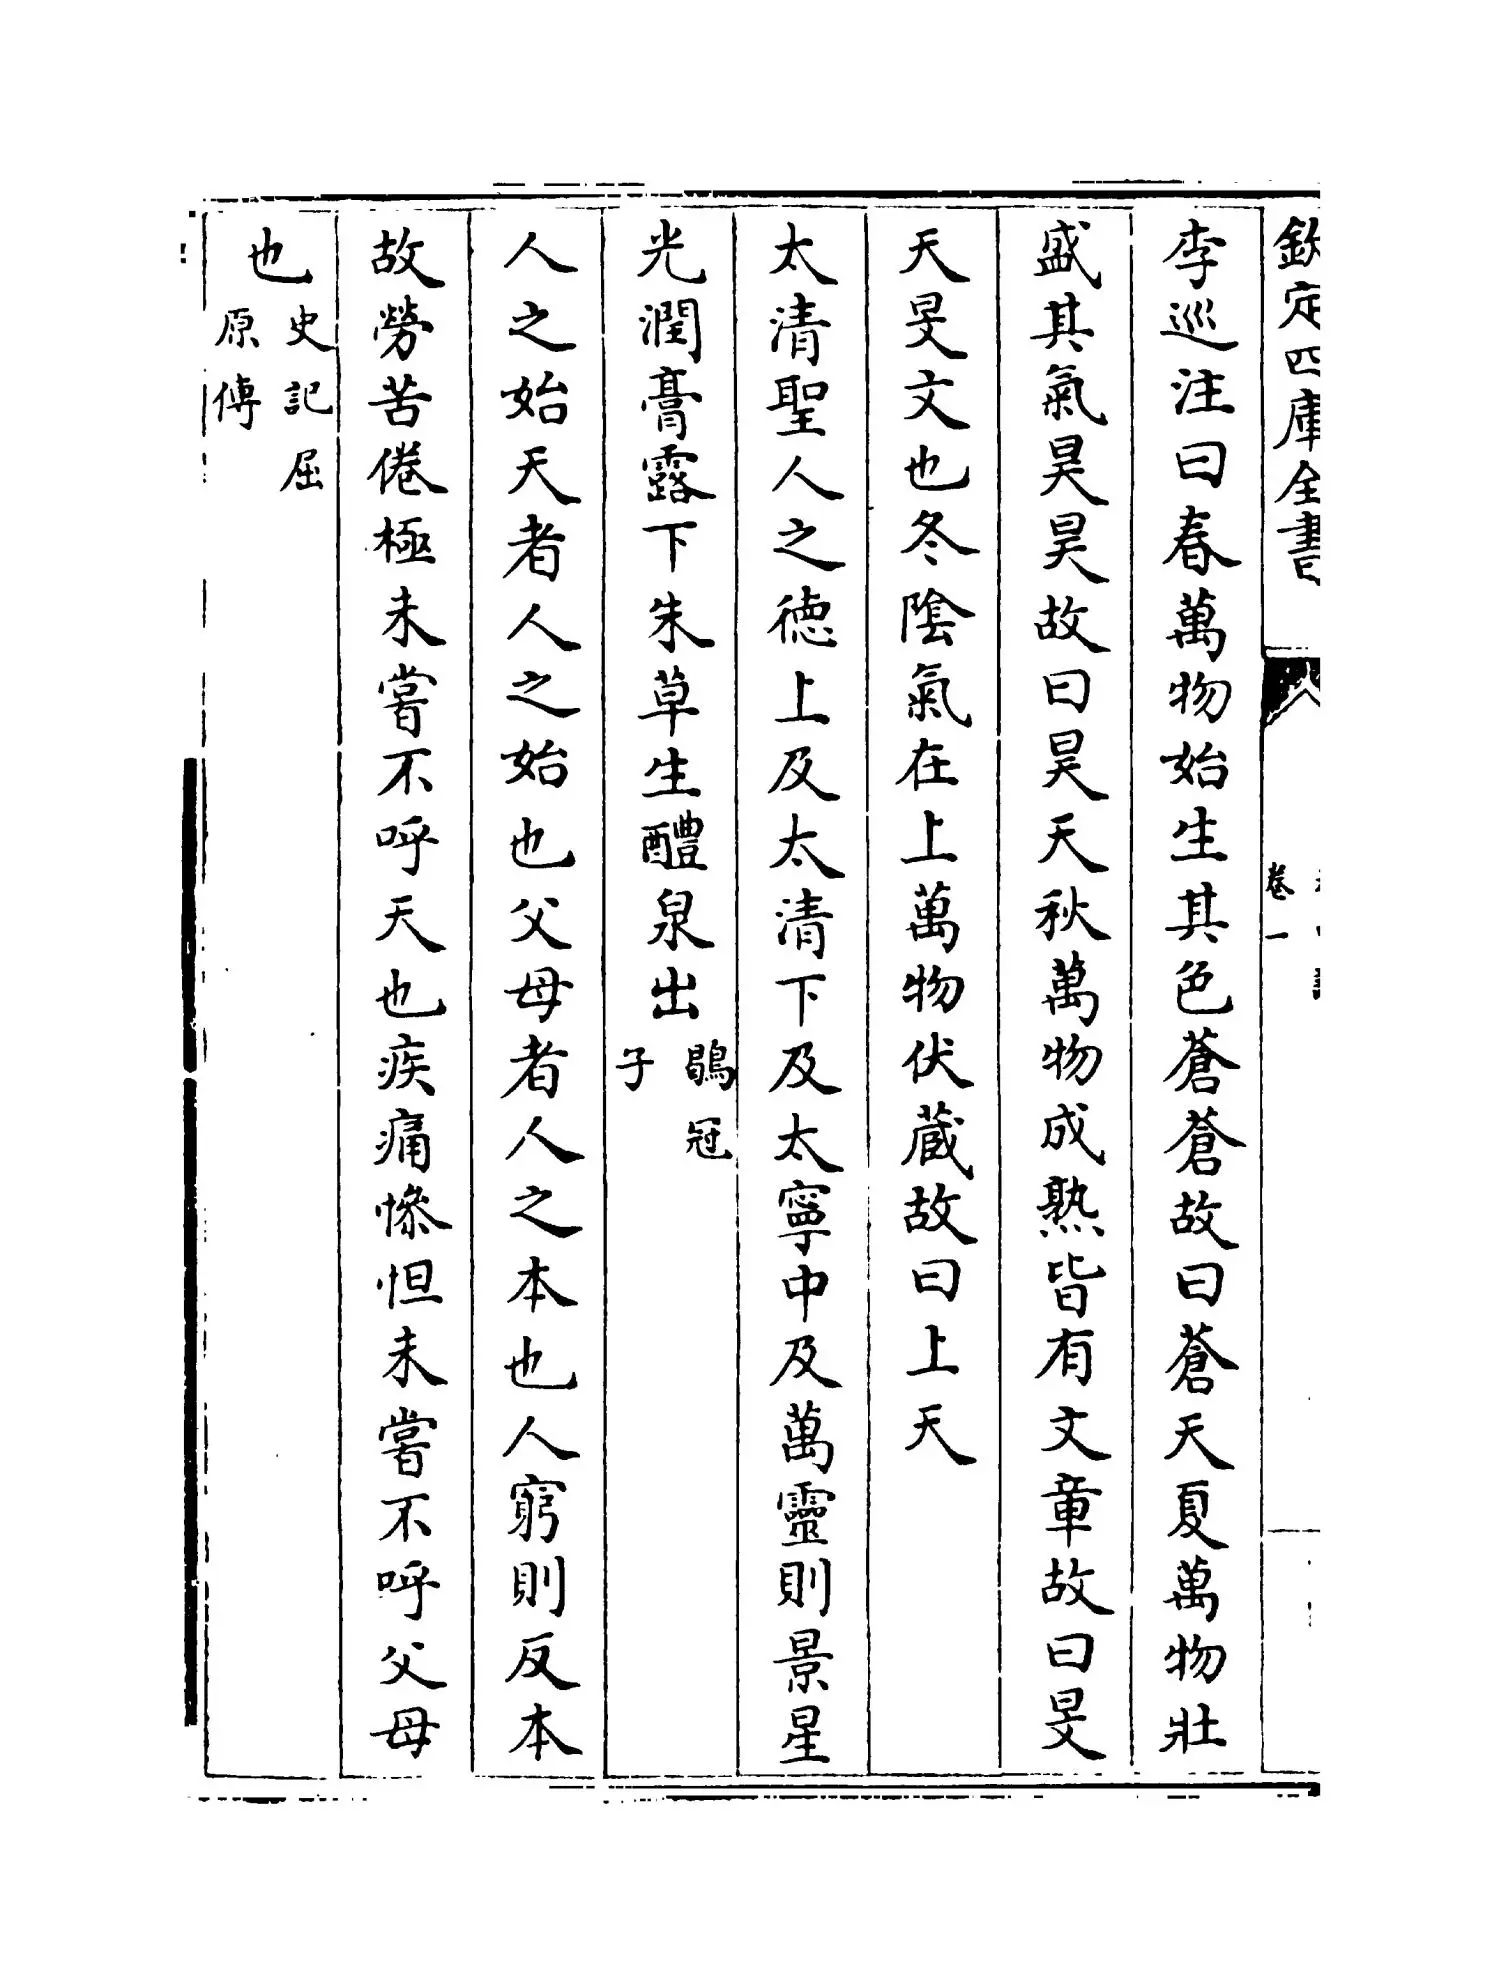 欽定四庫全書
卷一
李巡注曰春萬物始生其色蒼蒼故曰蒼天夏萬物壯
盛其氣昊昊故曰昊天秋萬物成熟皆有文章故曰旻
天旻文也冬陰氣在上萬物伏蔵故曰上天
太清聖人之徳上及太清下及太寧中及萬靈則景星
光潤膏露下朱草生醴泉出鶡冠子
人之始天者人之始也父母者人之本也人窮則反本
故勞苦倦極未嘗不呼天也疾痛慘怛未嘗不呼父母
也史記屈原傳